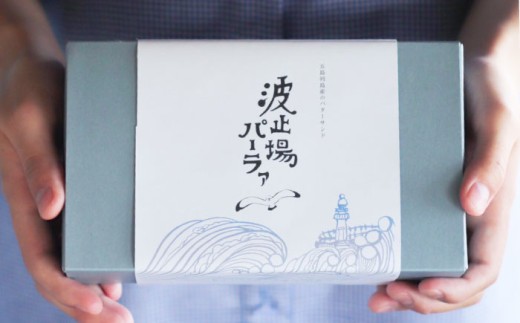 波止場
パーラァ